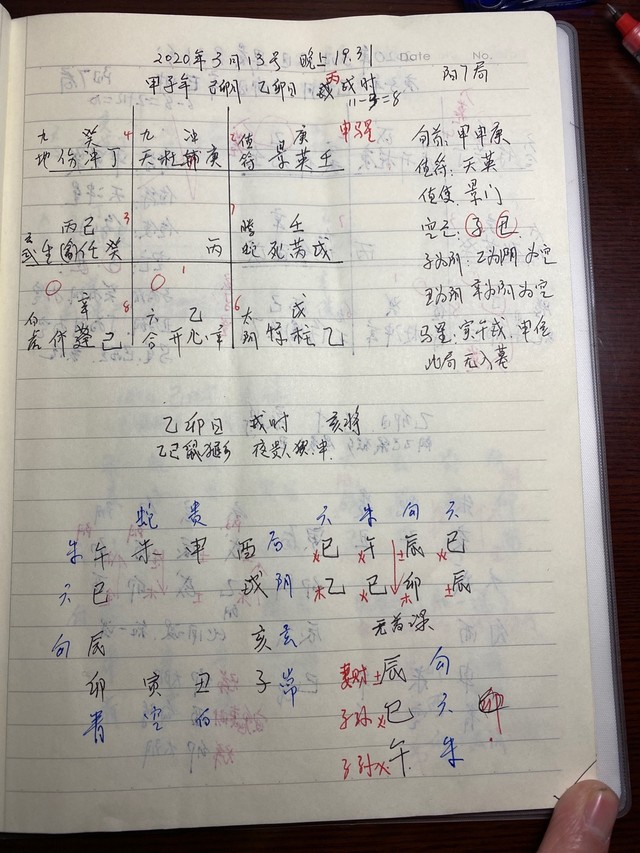 Date No.
2020年3月13号 晚上19.31
甲子年 己卯月 乙卯日 丙戌时 阳7局
11-3=8
九 癸 4 九 冲 值 庚 申马星
地 伤 冲 丁 天 杜 辅 庚 符 景 英 壬
旬首: 甲申庚
值符: 天英
值使: 景门
丙己 3 7 腾 壬
生 任 癸 丙 蛇 死 芮 戊
空亡: 子 丑
子为阴: 乙为阴 为空
丑为阴 辛为阴 为空
1
辛 8 六 乙 6 太 戊
白虎 休 蓬 己 合 开 心 辛 阴 惊 柱 乙
马星: 寅午戌, 申位
此局无入墓
乙卯日 戌时 亥将
乙己鼠猴乡 夜贵人 申
蛇 贵 六 朱 勾 六
朱 午 未 申 酉 后 巳 午 辰 巳
六 巳 戌 阴 乙 巳 卯 辰
勾 辰 亥 玄
卯 寅 丑 子 常
青 空 白
妻财 土 辰 勾
子孙 火 巳 六
子孙 火 午 朱
卯